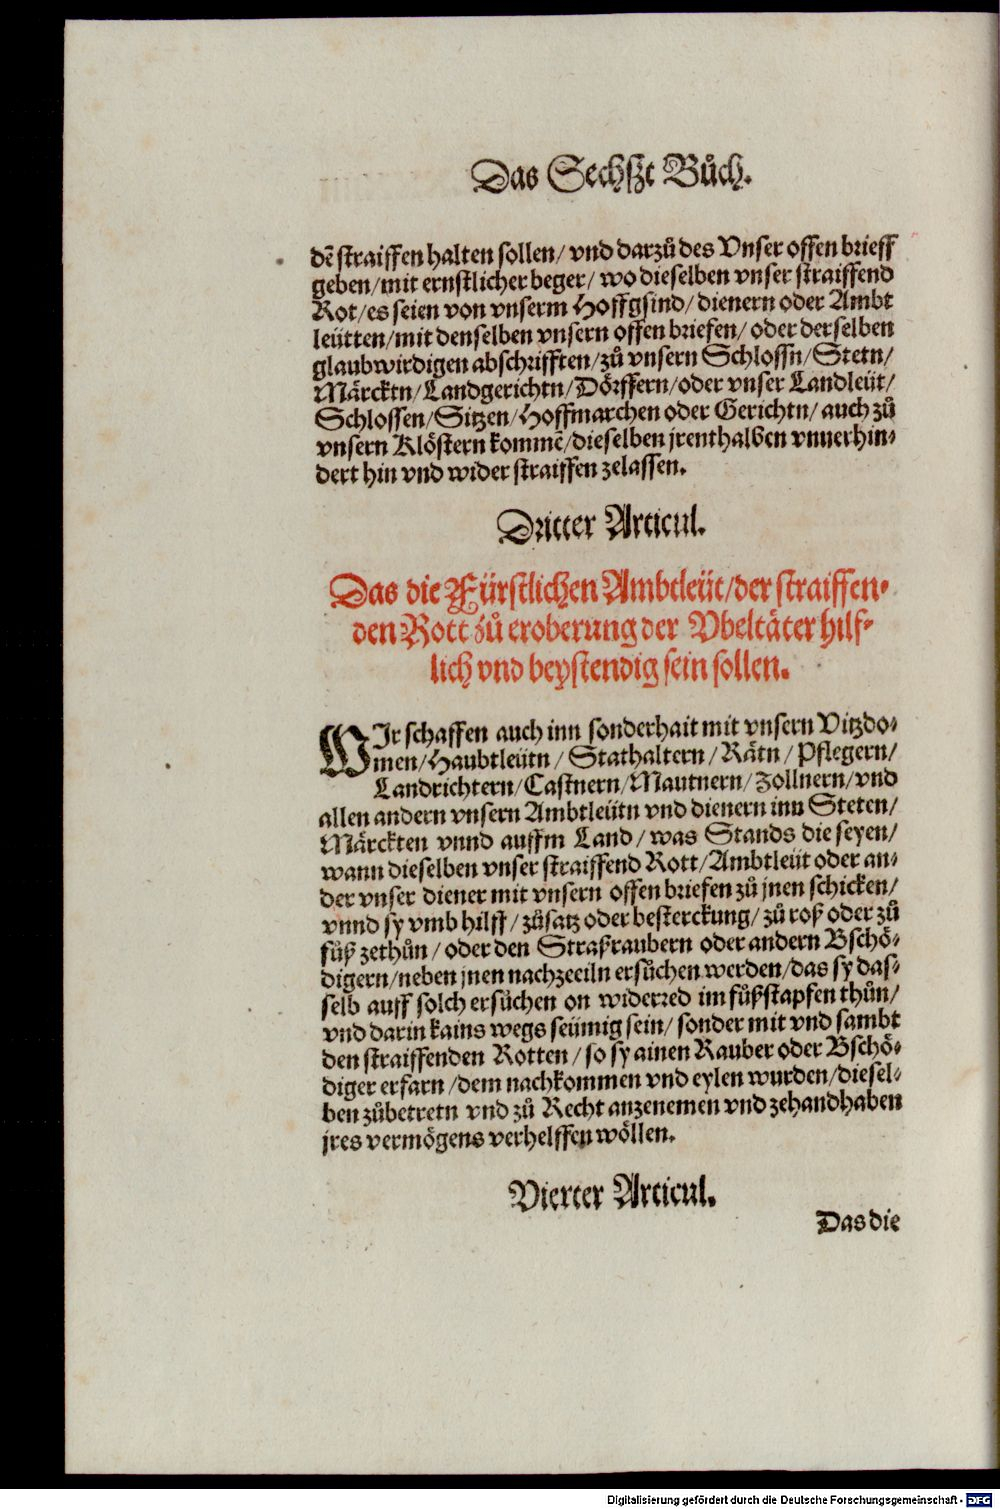 Das Sechßt Bůch.
dē straiffen halten sollen/ vnd darzů des Vnser offen brieff
geben/mit ernstlicher beger/ wo dieselben vnser straiffend
Rot/es seien von vnserm Hoffgsind/ dienern oder Ambt
leütten/mit denselben vnsern offen briefen/ oder derselben
glaubwirdigen abschrifften/zů vnsern Schlossn/Stetn/
Märcktn/Landgerichtn/Dörffern/oder vnser Landleüt/
Schlossen/Sitzen/Hoffmarchen oder Gerichtn/ auch zů
vnsern Klöstern kommē/dieselben jrenthalben vnuerhin-
dert hin vnd wider straiffen zelassen.
Dritter Articul.
Das die Fürstlichen Ambtleüt/der straiffen-
den Rott zů eroberung der Vbeltäter hilf-
lich vnd beystendig sein sollen.
WIr schaffen auch inn sonderhait mit vnsern Vitzdo-
men/Haubtleütn / Stathaltern / Rätn / Pflegern/
Landrichtern/Castnern/Mautnern/Zollnern/vnd
allen andern vnsern Ambtleütn vnd dienern inn Steten/
Märckten vnnd auffm Land/ was Stands die seyen/
wann dieselben vnser straiffend Rott/Ambtleüt oder an-
der vnser diener mit vnsern offen briefen zů jnen schicken/
vnnd sy vmb hilff/ zůsatz oder besterckung/ zů roß oder zů
fůß zethůn/ oder den Straßraubern oder andern Bschö-
digern/neben jnen nachzeciln ersůchen werden/das sy das-
selb auff solch ersůchen on widerred im fůßstapfen thůn/
vnd darin kains wegs seümig sein/ sonder mit vnd sambt
den straiffenden Rotten / so sy ainen Rauber oder Bschö-
diger erfarn /dem nachkommen vnd eylen wurden/diesel-
ben zůbetretn vnd zů Recht anzenemen vnd zehandhaben
jres vermögens verhelffen wöllen.
Vierter Articul.
Das die
Digitalisierung gefördert durch die Deutsche Forschungsgemeinschaft - DFG